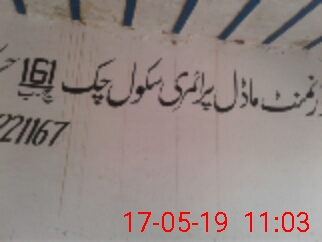 گورنمنٹ ماڈل پرائمری سکول چک 161
221167
17-05-19 11:03